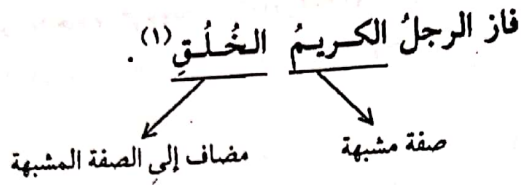 فاز الرجلُ الكريمُ الخُلُقِ(١) .
صفة مشبهة
مضاف إلي الصفة المشبهة